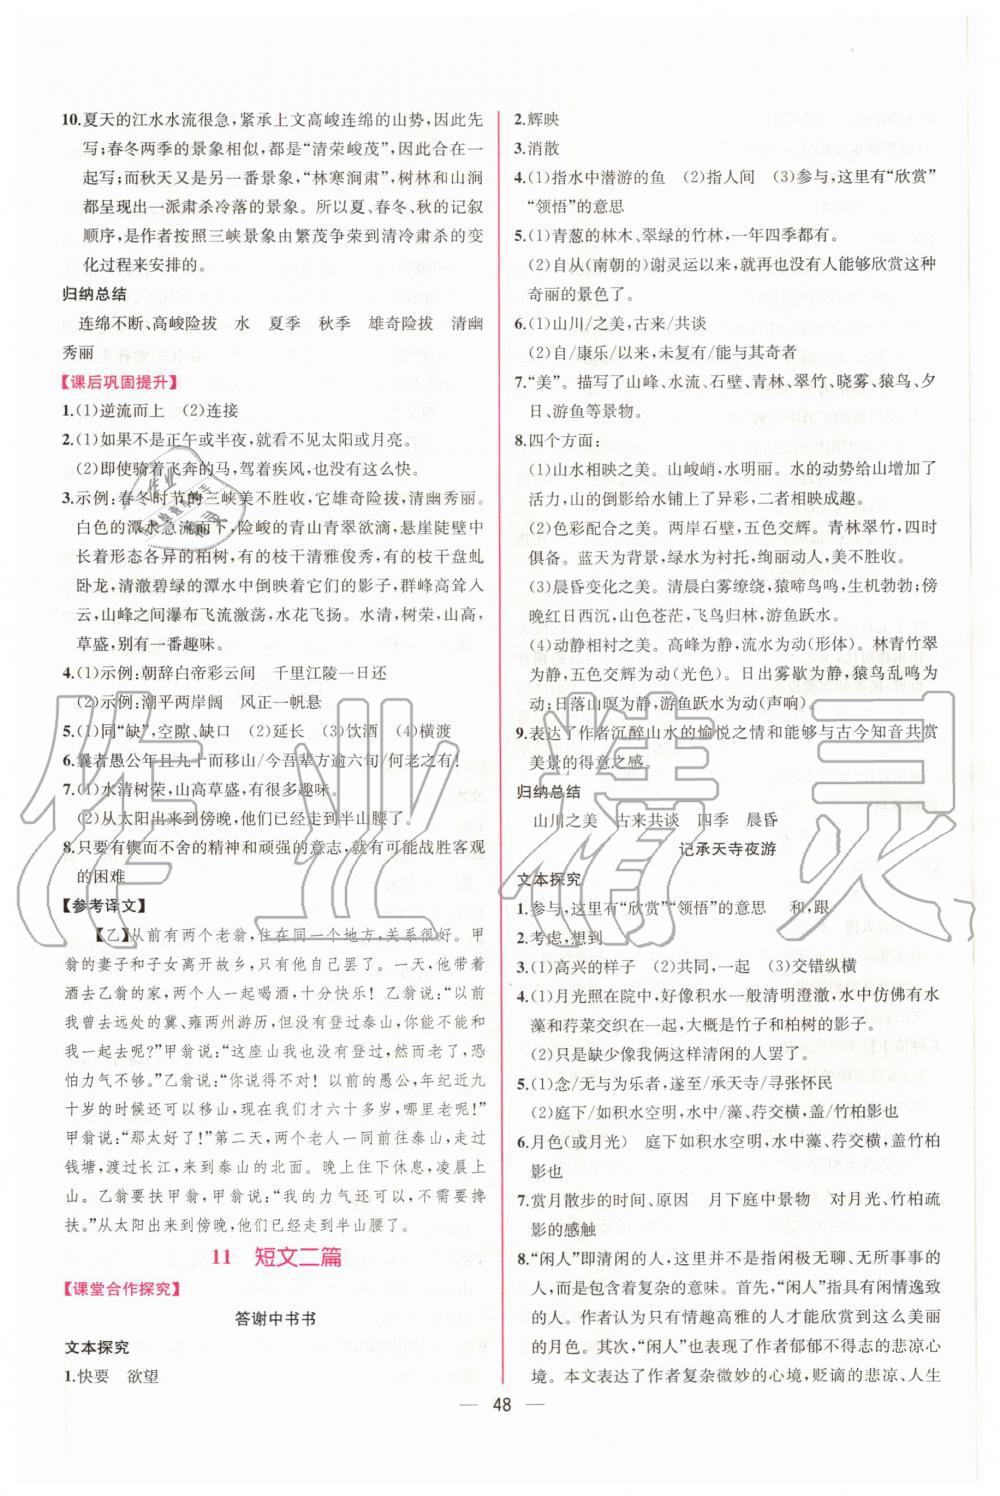 10.夏天的江水水流很急,紧承上文高峻连绵的山势,因此先
写;春冬两季的景象相似,都是“清荣峻茂”,因此合在一
起写;而秋天又是另一番景象,“林寒涧肃”,树林和山涧
都呈现出一派肃杀冷落的景象。所以夏、春冬、秋的记叙
顺序,是作者按照三峡景象由繁茂争荣到清冷肃杀的变
化过程来安排的。
归纳总结
连绵不断、高峻险拔 水 夏季 秋季 雄奇险拔 清幽
秀丽
【课后巩固提升】
1.(1)逆流而上 (2)连接
2.(1)如果不是正午或半夜,就看不见太阳或月亮。
(2)即使骑着飞奔的马,驾着疾风,也没有这么快。
3.示例:春冬时节的三峡美不胜收,它雄奇险拔,清幽秀丽。
白色的潭水急流而下,险峻的青山青翠欲滴,悬崖陡壁中
长着形态各异的柏树,有的枝干清雅俊秀,有的枝干盘虬
卧龙,清澈碧绿的潭水中倒映着它们的影子,群峰高耸入
云,山峰之间瀑布飞流激荡,水花飞扬。水清,树荣,山高,
草盛,别有一番趣味。
4.(1)示例:朝辞白帝彩云间 千里江陵一日还
(2)示例:潮平两岸阔 风正一帆悬
5.(1)同“缺”,空隙、缺口 (2)延长 (3)饮酒 (4)横渡
6.曩者愚公年且九十而移山/今吾辈方逾六旬/何老之有!
7.(1)水清树荣,山高草盛,有很多趣味。
(2)从太阳出来到傍晚,他们已经走到半山腰了。
8.只要有锲而不舍的精神和顽强的意志,就有可能战胜客观
的困难
【参考译文】
【乙】从前有两个老翁,住在同一个地方,关系很好。甲
翁的妻子和子女离开故乡,只有他自己罢了。一天,他带着
酒去乙翁的家,两个人一起喝酒,十分快乐!乙翁说:“以前
我曾去远处的冀、雍两州游历,但没有登过泰山,你能不能和
我一起去呢?”甲翁说:“这座山我也没有登过,然而老了,恐
怕力气不够。”乙翁说:“你说得不对!以前的愚公,年纪近九
十岁的时候还可以移山,现在我们才六十多岁,哪里老呢!”
甲翁说:“那太好了!”第二天,两个老人一同前往泰山,走过
钱塘,渡过长江,来到泰山的北面。晚上住下休息,凌晨上
山。乙翁要扶甲翁,甲翁说:“我的力气还可以,不需要搀
扶。”从太阳出来到傍晚,他们已经走到半山腰了。
11 短文二篇
【课堂合作探究】
答谢中书书
文本探究
1.快要 欲望
2.辉映
3.消散
4.(1)指水中潜游的鱼 (2)指人间 (3)参与,这里有“欣赏”
“领悟”的意思
5.(1)青葱的林木、翠绿的竹林,一年四季都有。
(2)自从(南朝的)谢灵运以来,就再也没有人能够欣赏这种
奇丽的景色了。
6.(1)山川/之美,古来/共谈
(2)自/康乐/以来,未复有/能与其奇者
7.“美”。描写了山峰、水流、石壁、青林、翠竹、晓雾、猿鸟、夕
日、游鱼等景物。
8.四个方面:
(1)山水相映之美。山峻峭,水明丽。水的动势给山增加了
活力,山的倒影给水铺上了异彩,二者相映成趣。
(2)色彩配合之美。两岸石壁,五色交辉。青林翠竹,四时
俱备。蓝天为背景,绿水为衬托,绚丽动人,美不胜收。
(3)晨昏变化之美。清晨白雾缭绕,猿啼鸟鸣,生机勃勃;傍
晚红日西沉,山色苍茫,飞鸟归林,游鱼跃水。
(4)动静相衬之美。高峰为静,流水为动(形体)。林青竹翠
为静,五色交辉为动(光色)。日出雾歇为静,猿鸟乱鸣为
动;日落山暝为静,游鱼跃水为动(声响)。
9.表达了作者沉醉山水的愉悦之情和能够与古今知音共赏
美景的得意之感。
归纳总结
山川之美 古来共谈 四季 晨昏
记承天寺夜游
文本探究
1.参与,这里有“欣赏”“领悟”的意思 和,跟
2.考虑,想到
3.(1)高兴的样子 (2)共同,一起 (3)交错纵横
4.(1)月光照在院中,好像积水一般清明澄澈,水中仿佛有水
藻和荇菜交织在一起,大概是竹子和柏树的影子。
(2)只是缺少像我俩这样清闲的人罢了。
5.(1)念/无与为乐者,遂至/承天寺/寻张怀民
(2)庭下/如积水空明,水中/藻、荇交横,盖/竹柏影也
6.月色(或月光) 庭下如积水空明,水中藻、荇交横,盖竹柏
影也
7.赏月散步的时间、原因 月下庭中景物 对月光、竹柏疏
影的感触
8.“闲人”即清闲的人,这里并不是指闲极无聊、无所事事的
人,而是包含着复杂的意味。首先,“闲人”指具有闲情逸致
的人。作者认为只有情趣高雅的人才能欣赏到这么美丽
的月色。其次,“闲人”委婉地表现了作者郁郁不得志的悲凉心
境。本文表达了作者复杂微妙的心境,贬谪的悲凉、人生
48
作业精灵